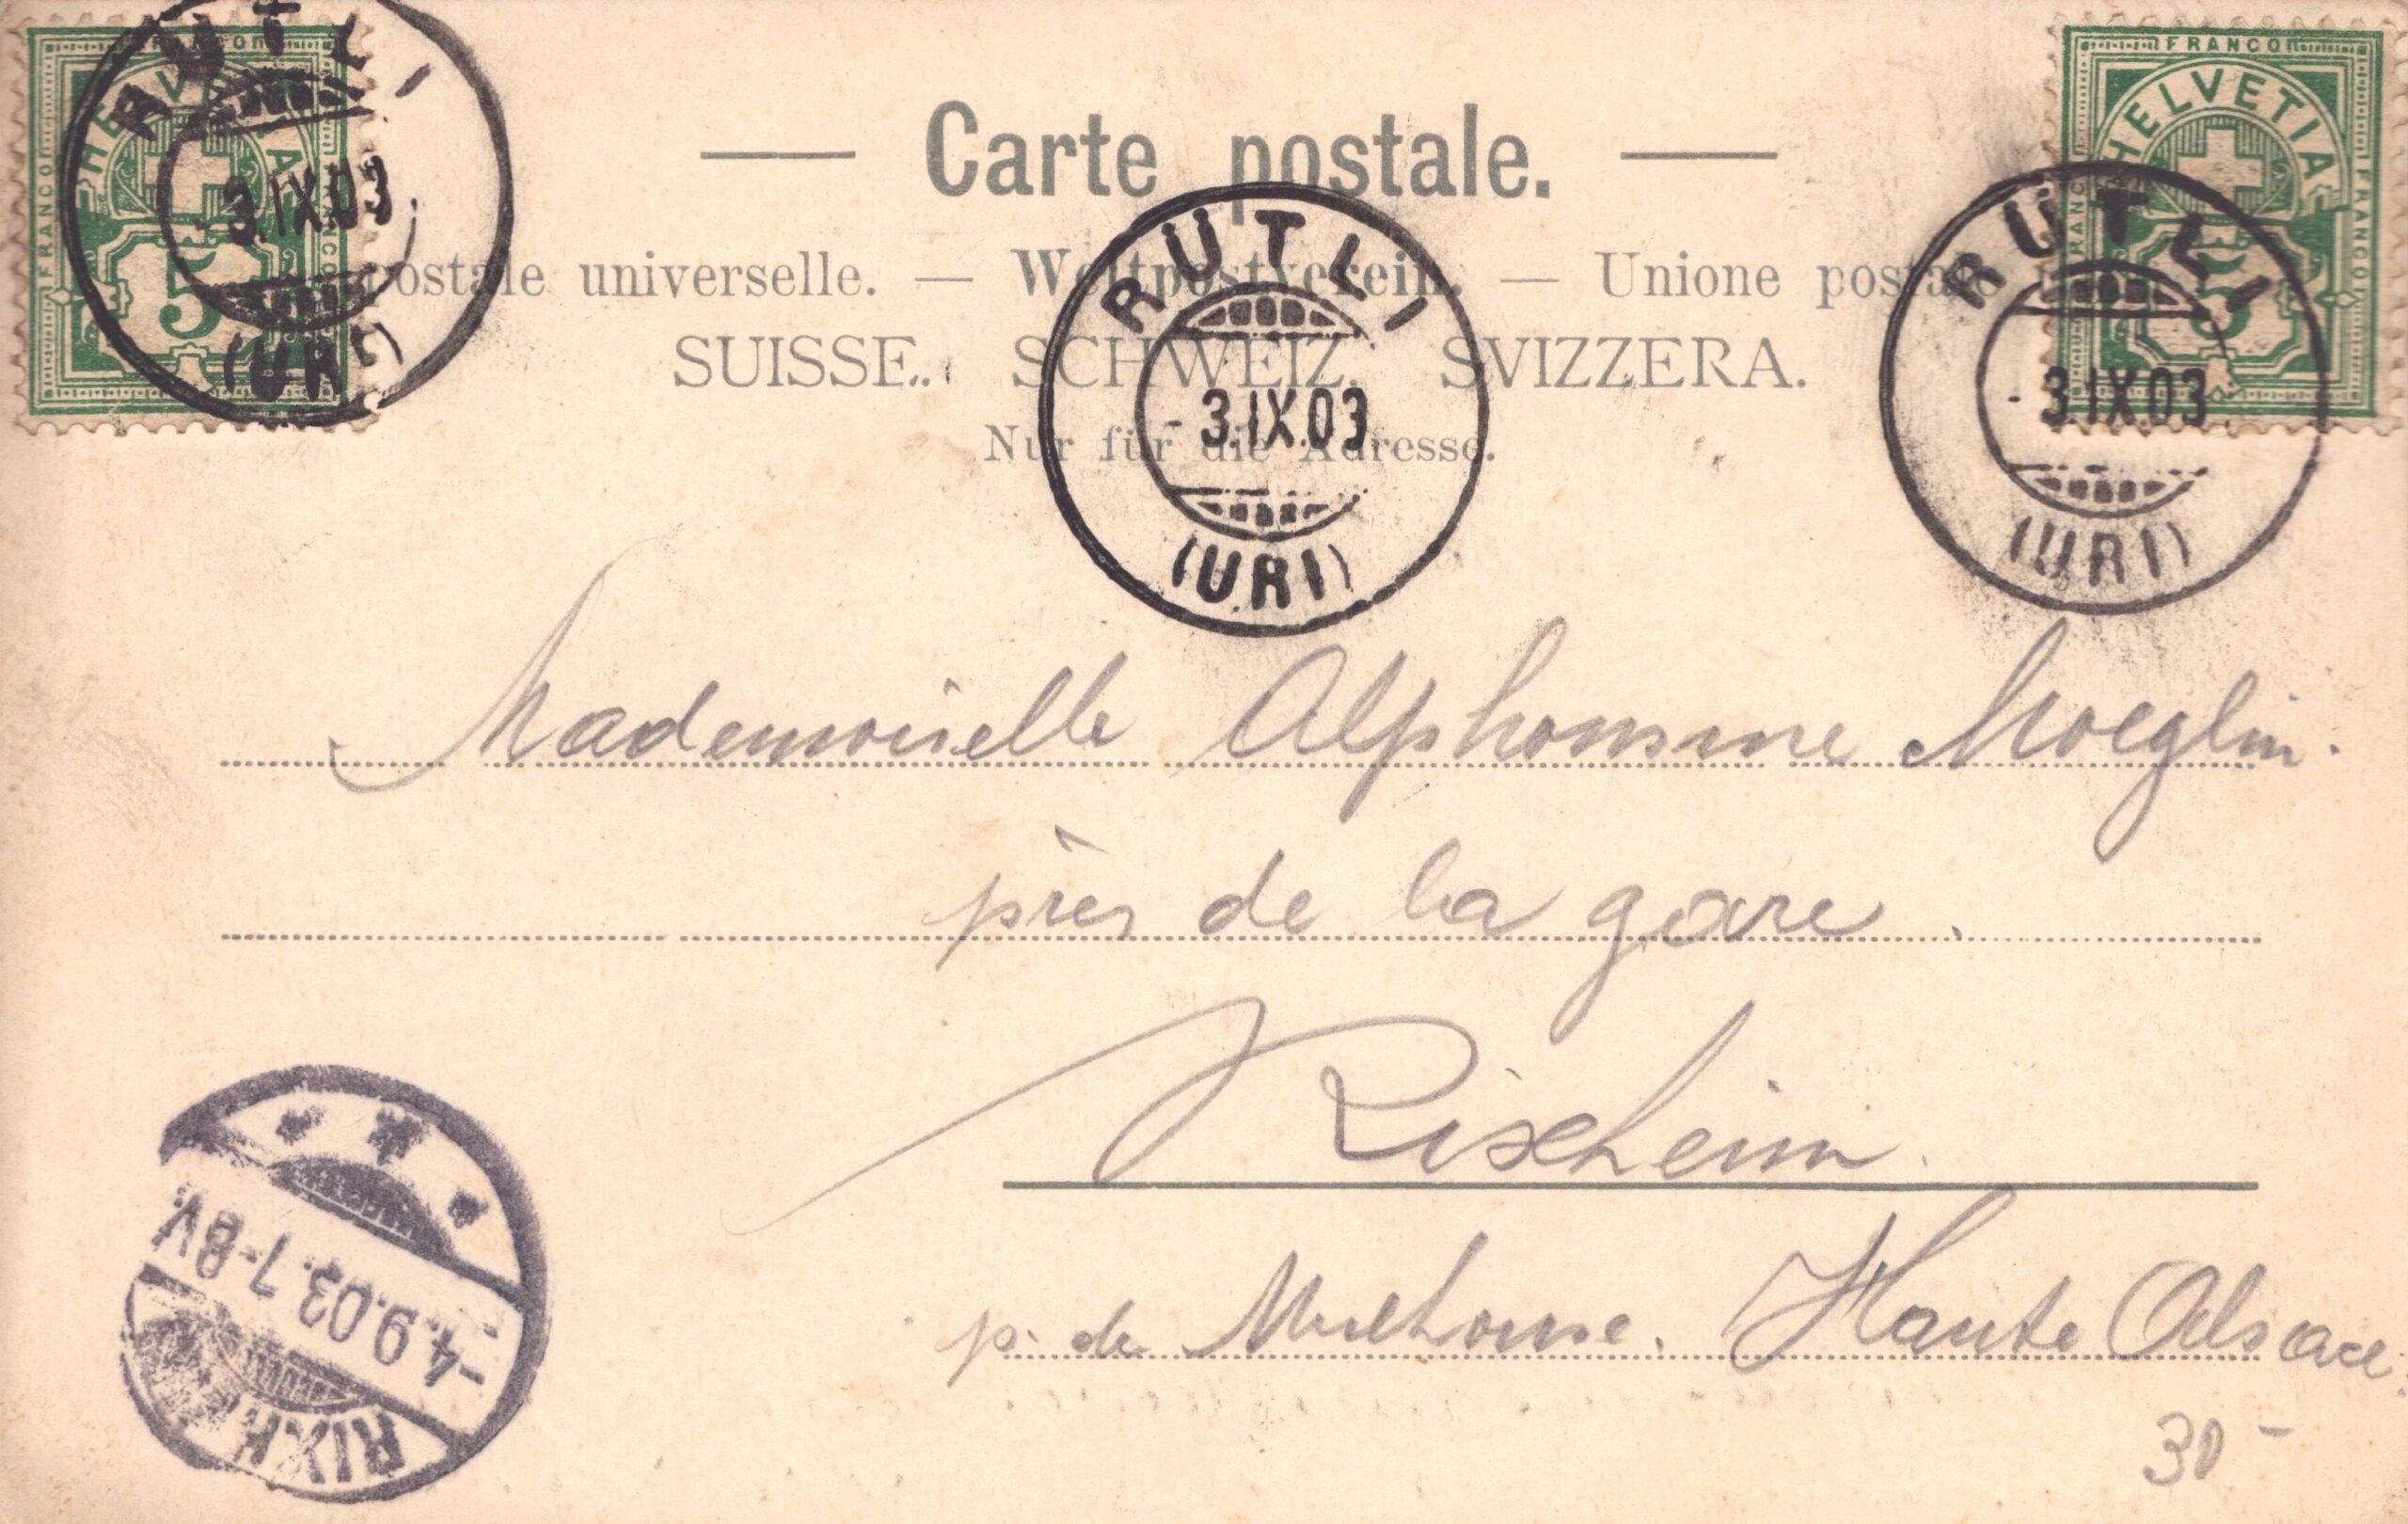 FRANCO
HELVETIA
FRANCO
FRANCO
5
RÜTLI
-3.IX.03
(URI)
Carte postale.
FRANCO
HELVETIA
FRANCO
FRANCO
5
RÜTLI
-3.IX.03
(URI)
postale universelle. — Weltpostverein. — Unione postale
RÜTLI
-3.IX.03
(URI)
SUISSE. SCHWEIZ. SVIZZERA.
Nur für die Adresse.
Mademoiselle Alphonsine Moeglin.
près de la gare.
Rixheim.
p. de Mulhouse. Haute Alsace.
-4.9.03.7-8V.
RIXH
30-